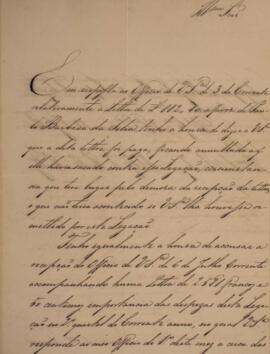 Illmo Snr
Em resposta ao Officio de V.S. de 3 do Corrente
relativamente a Letra de £ 112, 10, a favor de
Barbosa da Silva tenho a honra de dizer a V.S.
que a dita letra foi paga, ficando annullada a
que havia sacado contra essa Legação, circumstan-
cia que teve lugar pela demora da recepção da letra,
o que não teria acontecido se V.S. lha houvesse re-
mettido por esta Legação.
Tenho igualmente a honra de accusar a
recepção do Officio de V.S. de 6 de Julho Corrente
acompanhando huma Letra de francos, e
centimos importancia das despezas desta Lega-
ção no 2º quartel do Corrente anno, no qual V.S.
responde ao meu Officio de deste mez a cerca das